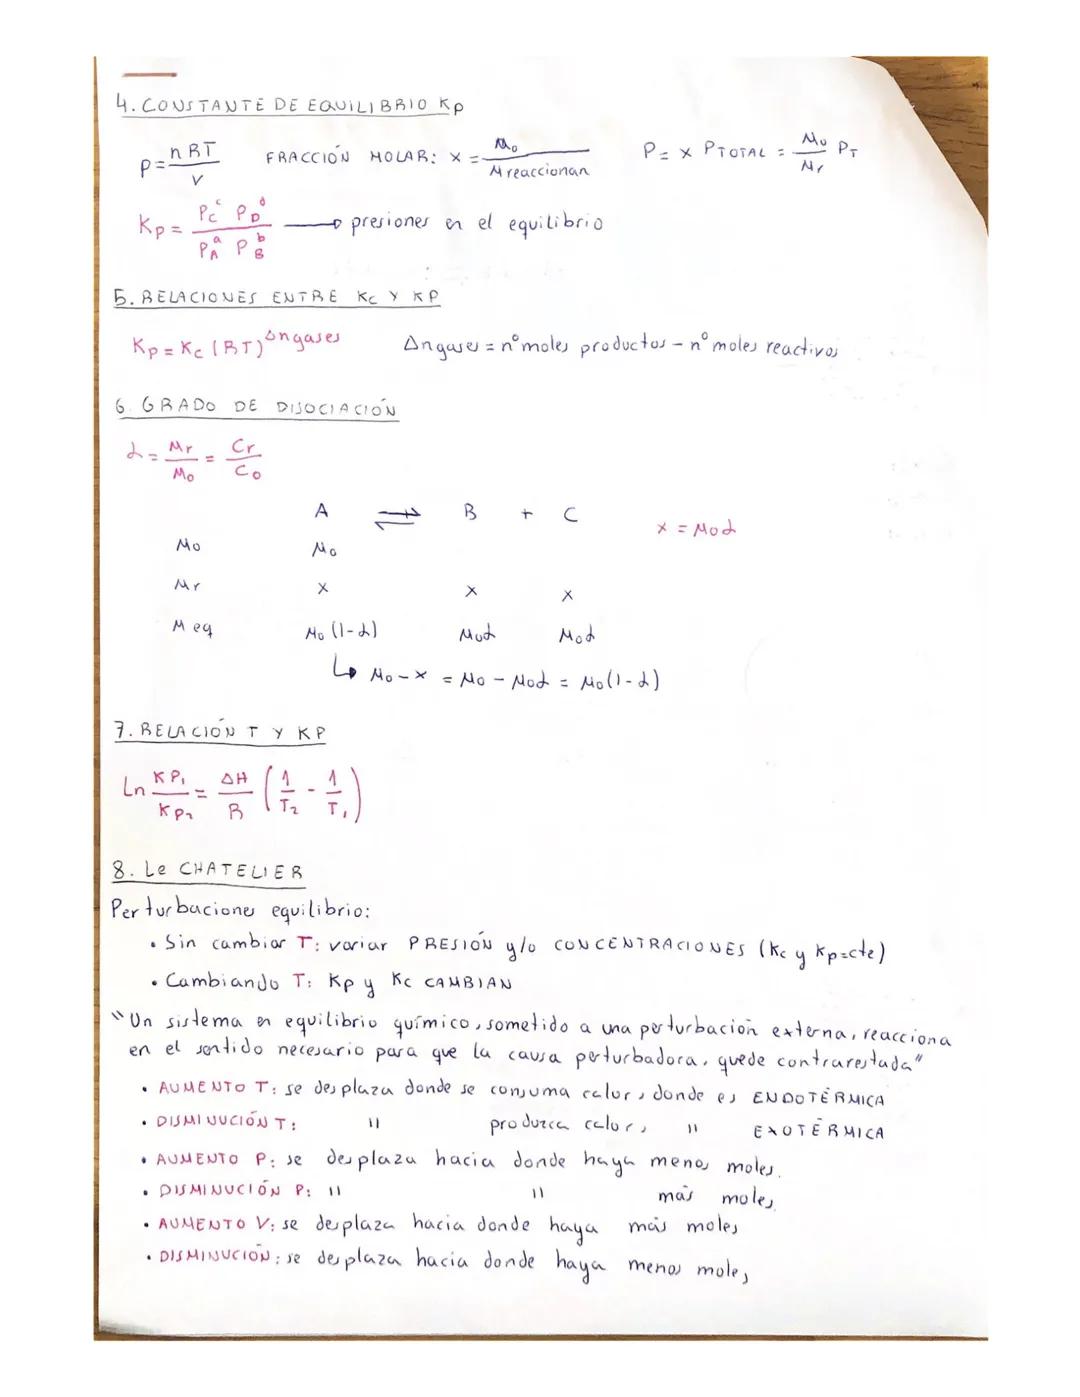 4. CONSTANTE DE EQUILIBRIO Kp
P = nRT / V   FRACCIÓN MOLAR: x = Mo / M reaccionan   P = x PTOTAL = Mo / Mr PT
Kp = Pc^c PD^d / PA^a PB^b → presiones en el equilibrio
5. RELACIONES ENTRE Kc Y KP
Kp = Kc (RT)^Δngases   Δngases = nº moles productos - nº moles reactivos
6. GRADO DE DISOCIACIÓN
α = Mr / Mo = Cr / Co
A ⇌ B + C   x = Moα
Mo   Mo
Mr   x   x   x
M eq   Mo (1-α)   Moα   Moα
↳ Mo - x = Mo - Moα = Mo(1-α)
7. RELACIÓN T Y KP
Ln KP1 / KP2 = ΔH / R (1/T2 - 1/T1)
8. Le CHATELIER
Perturbaciones equilibrio:
• Sin cambiar T: variar PRESIÓN y/o CONCENTRACIONES (Kc y Kp=cte)
• Cambiando T: Kp y Kc CAMBIAN
"Un sistema en equilibrio químico, sometido a una perturbación externa, reacciona
en el sentido necesario para que la causa perturbadora, quede contrarestada"
• AUMENTO T: se desplaza donde se consuma calor, donde es ENDOTÉRMICA
• DISMINUCIÓN T: " produzca calor, " EXOTÉRMICA
• AUMENTO P: se desplaza hacia donde haya menos moles.
• DISMINUCIÓN P: " " más moles
• AUMENTO V: se desplaza hacia donde haya más moles
• DISMINUCIÓN: se desplaza hacia donde haya menos moles